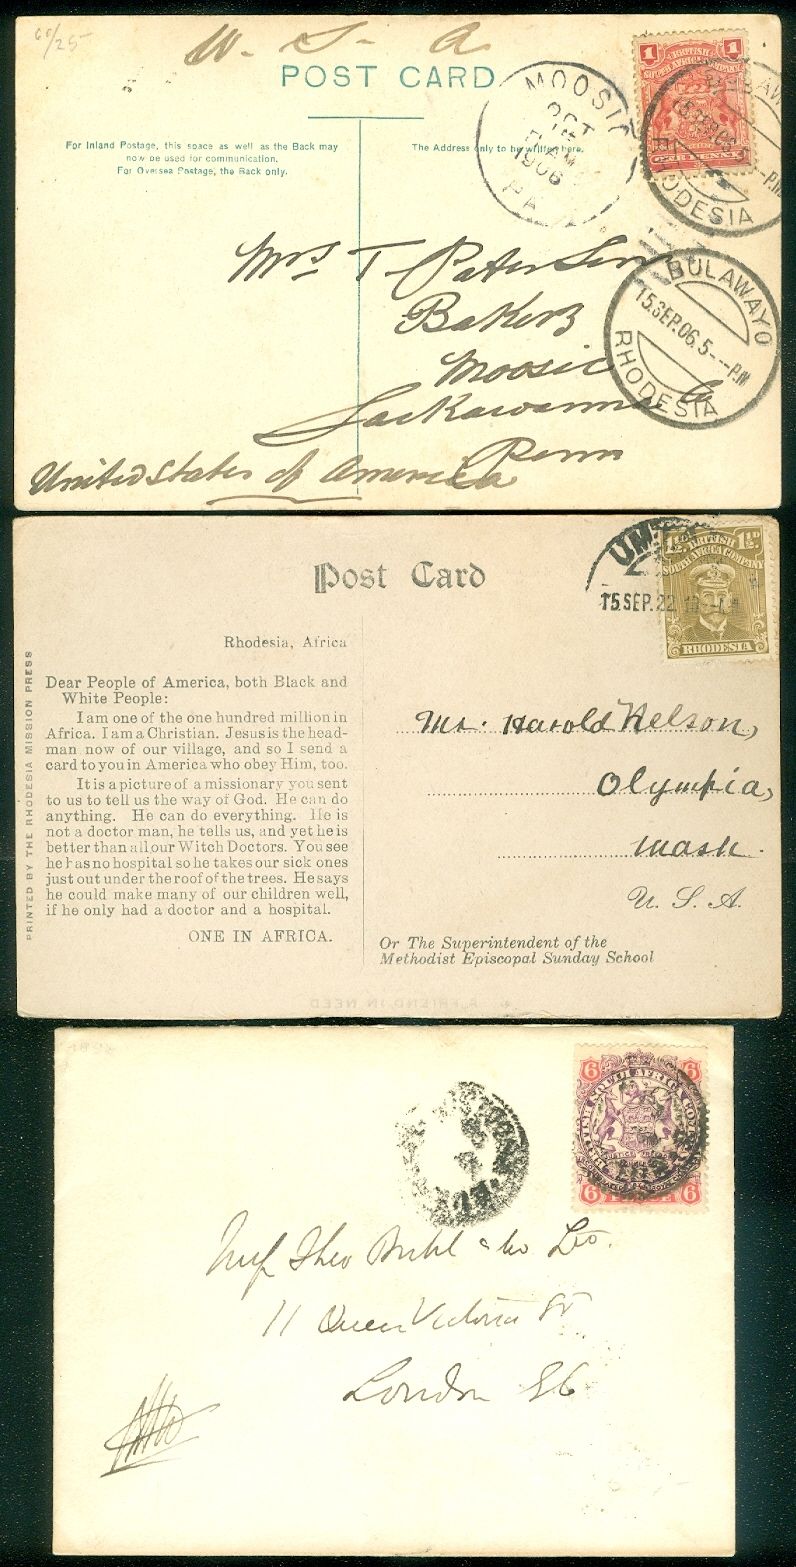 60/25-
U. S. A
POST CARD
For Inland Postage, this space as well as the Back may
now be used for communication.
For Oversea Postage, the Back only.
The Address only to be written here.
MOOSIC
OCT
AM
1906
PA
1 1
BRITISH
SOUTH AFRICA COMPANY
ONE PENNY
RHODESIA
P.M
BULAWAYO
15.SEP.06.5---P.M
RHODESIA
Mrs T Paterson
Bakers
Moosic
Lackawanna Co
Penn
United States of America
Post Card
UM
15.SEP.22
1½D 1½D
BRITISH
SOUTH AFRICA COMPANY
RHODESIA
PRINTED BY THE RHODESIA MISSION PRESS
Rhodesia, Africa
Dear People of America, both Black and
White People:
I am one of the one hundred million in
Africa. I am a Christian. Jesus is the head-
man now of our village, and so I send a
card to you in America who obey Him, too.
It is a picture of a missionary you sent
to us to tell us the way of God. He can do
anything. He can do everything. He is
not a doctor man, he tells us, and yet he is
better than all our Witch Doctors. You see
he has no hospital so he takes our sick ones
just out under the roof of the trees. He says
he could make many of our children well,
if he only had a doctor and a hospital.
ONE IN AFRICA.
Mr. Harold Nelson,
Olympia,
Wash.
U. S. A.
Or The Superintendent of the
Methodist Episcopal Sunday School
A FRIEND IN NEED
6 6
BRITISH SOUTH AFRICA COMPANY
6 6
Theo
11 Queen Victoria St
London EC